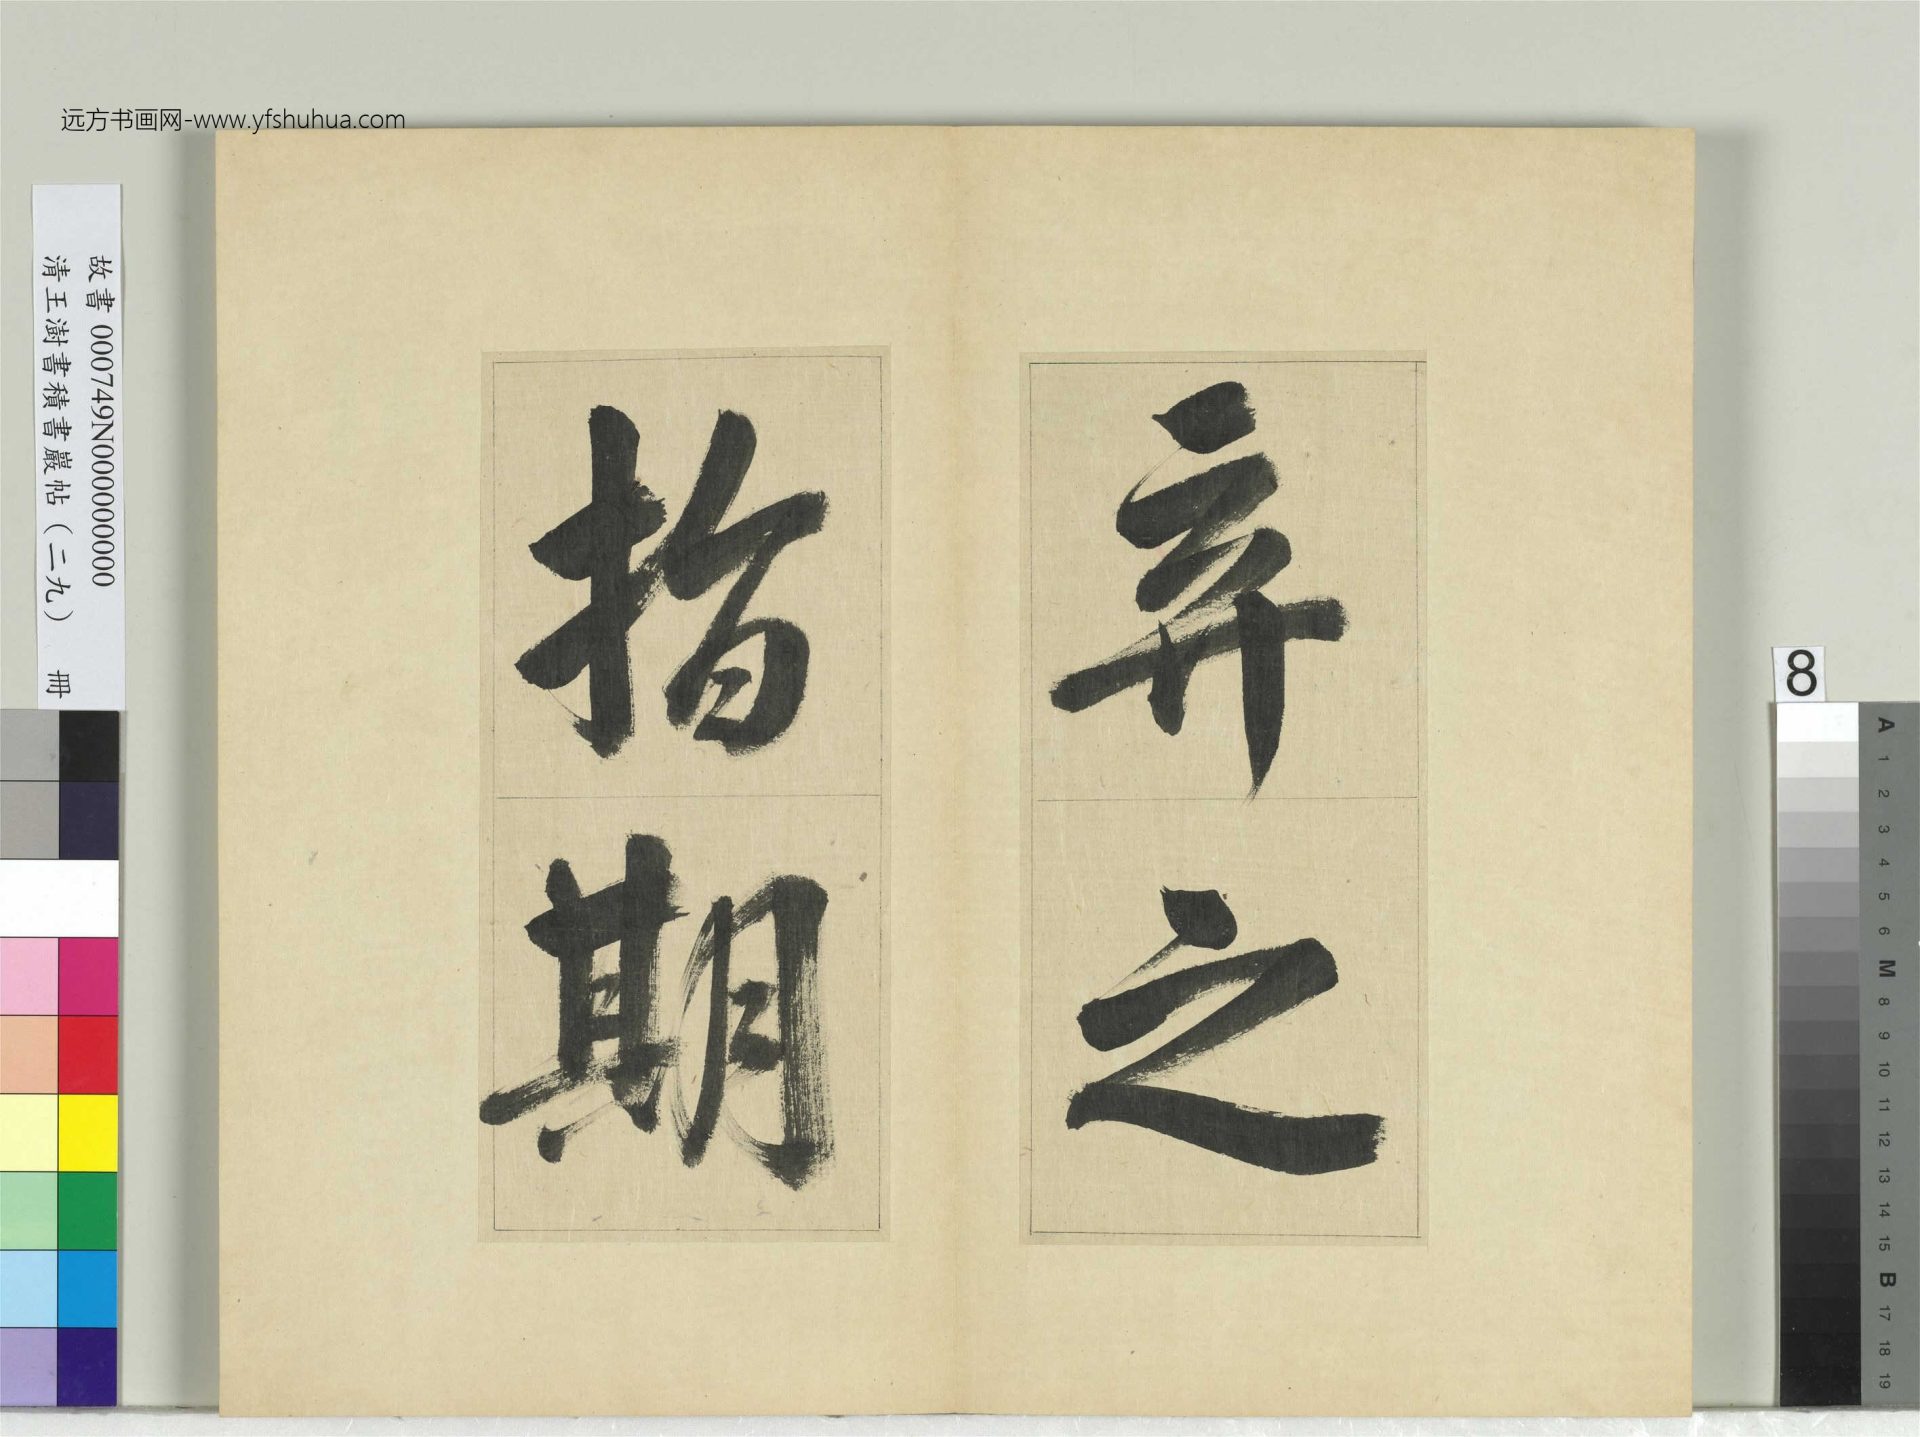 远方书画网-www.yfshuhua.com
故書 000749N000000000
清王澍書積書巖帖（二九） 冊
弃之
指期
8
A
1
2
3
4
5
6
M
8
9
10
11
12
13
14
15
B
17
18
19